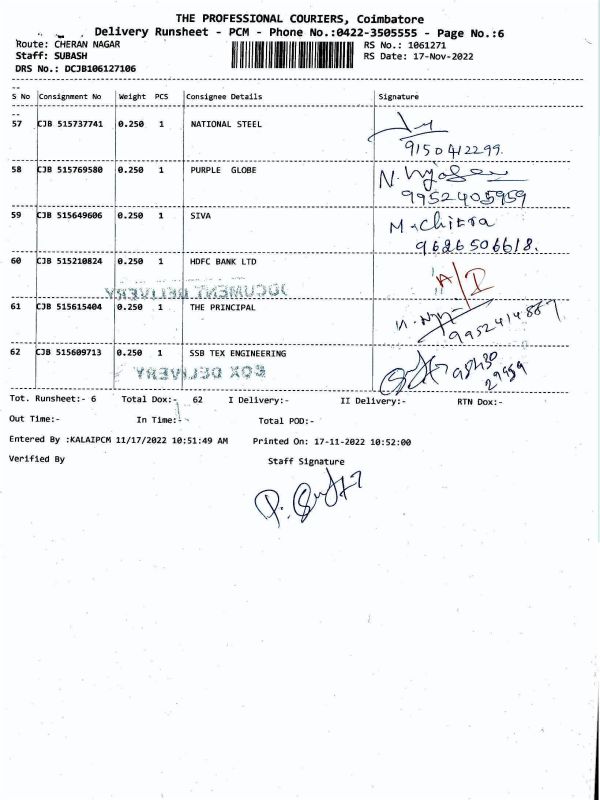 THE PROFESSIONAL COURIERS, Coimbatore
Delivery Runsheet - PCM - Phone No.:0422-3505555 - Page No.:6
Route: CHERAN NAGAR RS No.: 1061271
Staff: SUBASH RS Date: 17-Nov-2022
DRS No.: DCJB106127106
S No Consignment No Weight PCS Consignee Details Signature
57 CJB 515737741 0.250 1 NATIONAL STEEL
9150412299.
58 CJB 515769580 0.250 1 PURPLE GLOBE
9952405959
59 CJB 515649606 0.250 1 SIVA M.Chitra
9626506618.
60 CJB 515210824 0.250 1 HDFC BANK LTD
DOCUMENT DELIVERY
61 CJB 515615404 0.250 1 THE PRINCIPAL
9952414887
62 CJB 515609713 0.250 1 SSB TEX ENGINEERING
BOX DELIVERY
Tot. Runsheet:- 6 Total Dox:- 62 I Delivery:- II Delivery:- RTN Dox:-
Out Time:- In Time:- Total POD:-
Entered By :KALAIPCM 11/17/2022 10:51:49 AM Printed On: 17-11-2022 10:52:00
Verified By Staff Signature